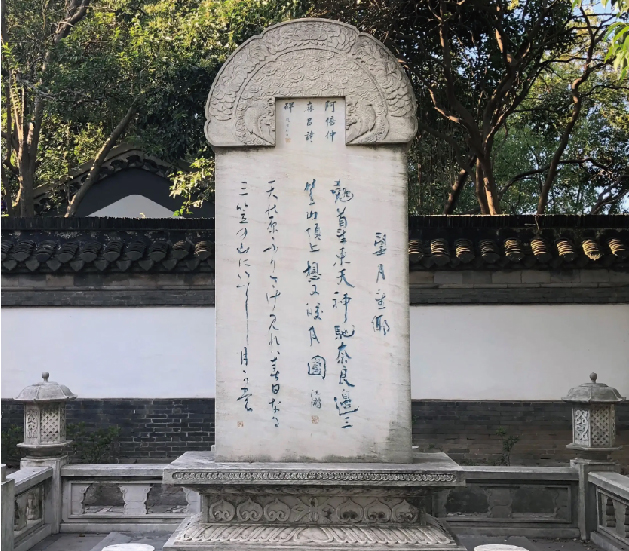 阿倍仲
麻吕詩
碑
望月望鄉
翹首望東天神馳奈良邊三
笠山頂上想又皎月圓
天の原ふりさけ見れば春日なる
三笠の山にいでし月かも